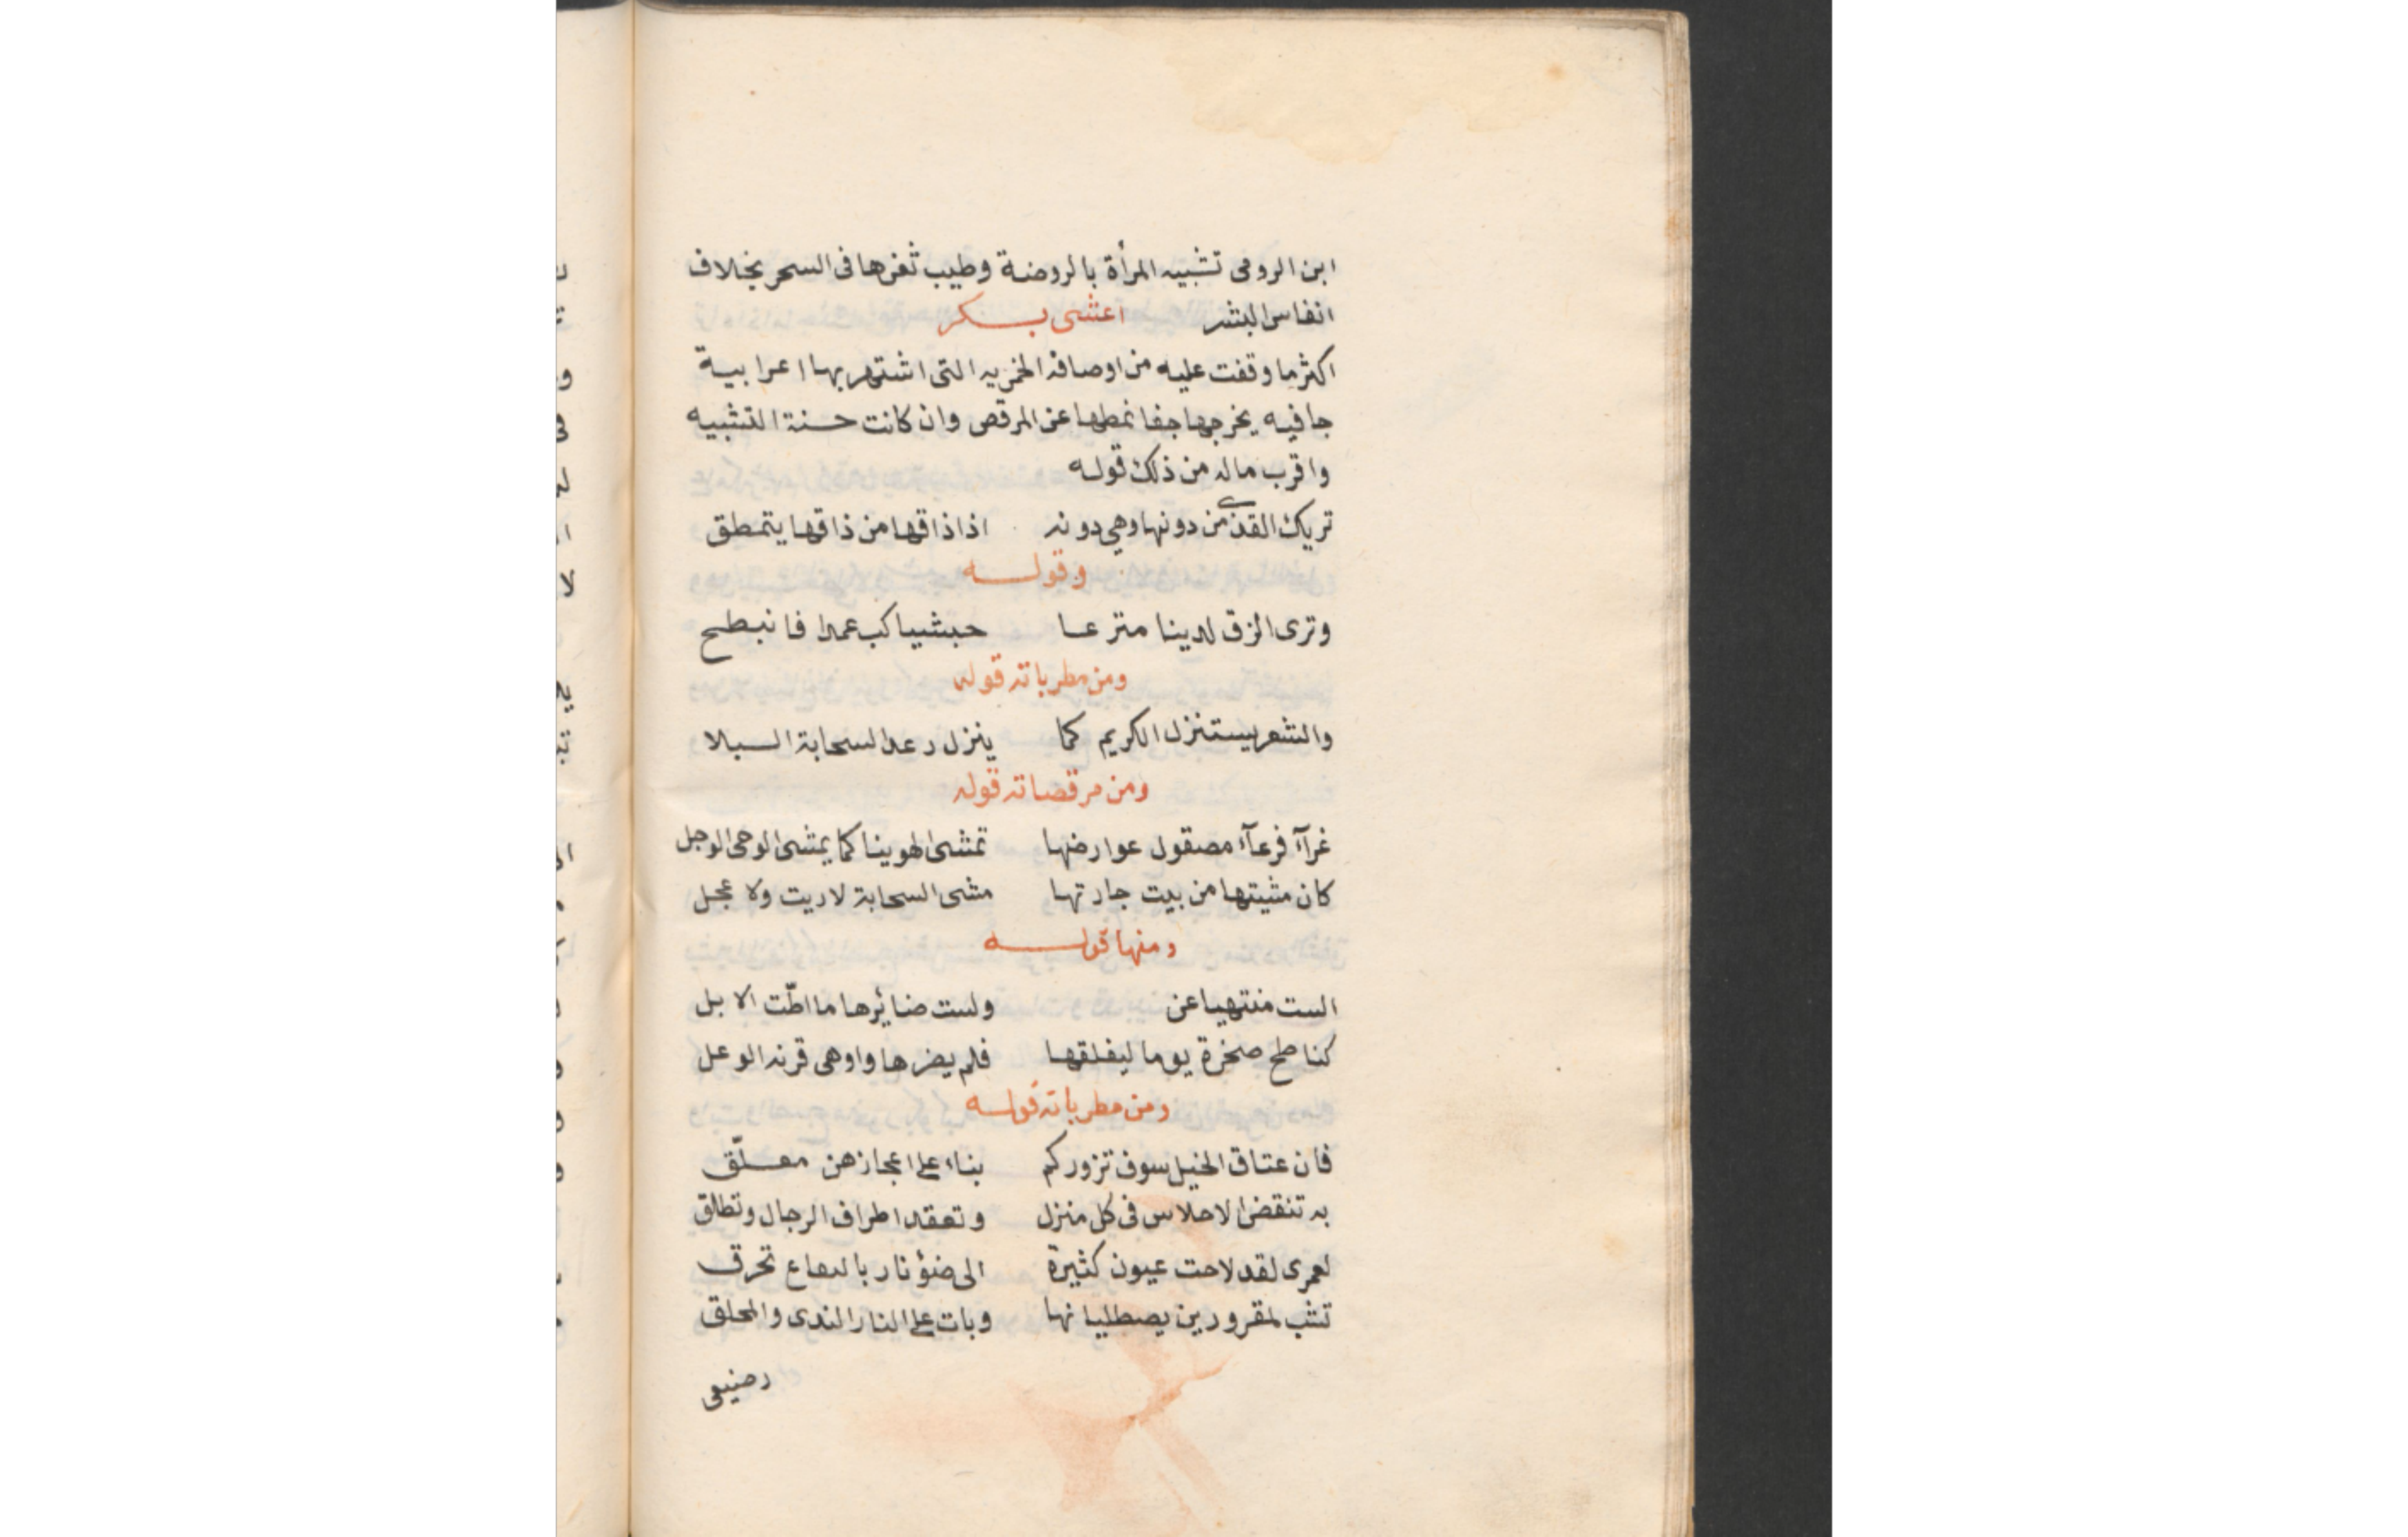 ابن الرومى تشبيه المرأة بالروضة وطيب ثغرها فى السحر بخلاف
انفاس البشر اعشى بكر
اكثر ما وقفت عليه من اوصافه الخمريه التى اشتهر بها اعرابية
جافيه يخرجها جفا نمطها عن المرقص وان كانت حسنة التشبيه
واقرب ماله من ذلك قوله
تريك القذى من دونها وهى دونه اذا ذاقها من ذاقها يتمطق
وقوله
وترى الزق لدينا مترعا حبشيا كب عمدا فانبطح
ومن مطرباته قوله
والشعر يستنزل الكريم كما ينزل رعد السحابة السبلا
ومن مرقصاته قوله
غرآء فرعآء مصقول عوارضها تمشى الهوينا كما يمشى الوحى الوجل
كان مشيتها من بيت جارتها مشى السحابة لاريت ولا عجل
ومنها قوله
الست منتهيا عن ولست ضائرها ما اطّت الابل
كناطح صخرة يوما ليفلقها فلم يضرها واوهى قرنه الوعل
ومن مطرباته قوله
فان عتاق الخيل سوف تزوركم بناء على اعجازهن معلّق
به تنقض الاحلاس فى كل منزل وتعقد اطراف الرجال وتطلق
لعمرى لقد لاحت عيون كثيرة الى ضوؤ نار باليفاع تحرق
تشب لمقرورين يصطليانها وبات على النار الندى والمحلق
رضيعى